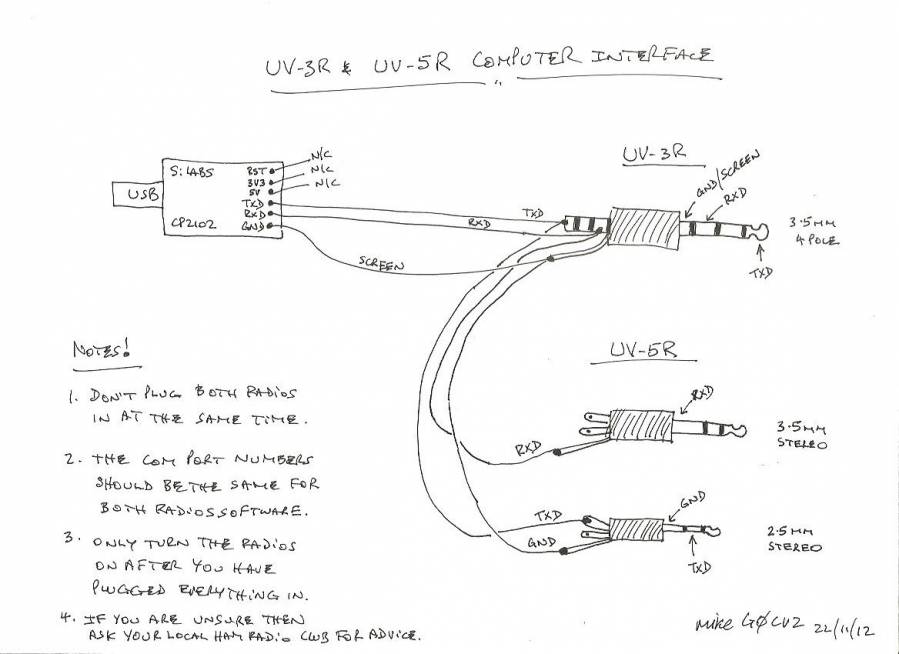 UV-3R & UV-5R COMPUTER INTERFACE
N/C
N/C
N/C
Si LABS
RST
3V3
5V
TXD
RXD
GND
USB
CP2102
TXD
RXD
SCREEN
UV-3R
GND/SCREEN
RXD
3.5MM
4 POLE
TXD
UV-5R
RXD
RXD
3.5MM
STEREO
TXD
GND
GND
TXD
2.5MM
STEREO
NOTES!
1. DON'T PLUG BOTH RADIOS
IN AT THE SAME TIME.
2. THE COM PORT NUMBERS
SHOULD BE THE SAME FOR
BOTH RADIOS SOFTWARE.
3. ONLY TURN THE RADIOS
ON AFTER YOU HAVE
PLUGGED EVERYTHING IN.
4. IF YOU ARE UNSURE THEN
ASK YOUR LOCAL HAM RADIO CLUB FOR ADVICE.
mike GØCVZ 22/11/12